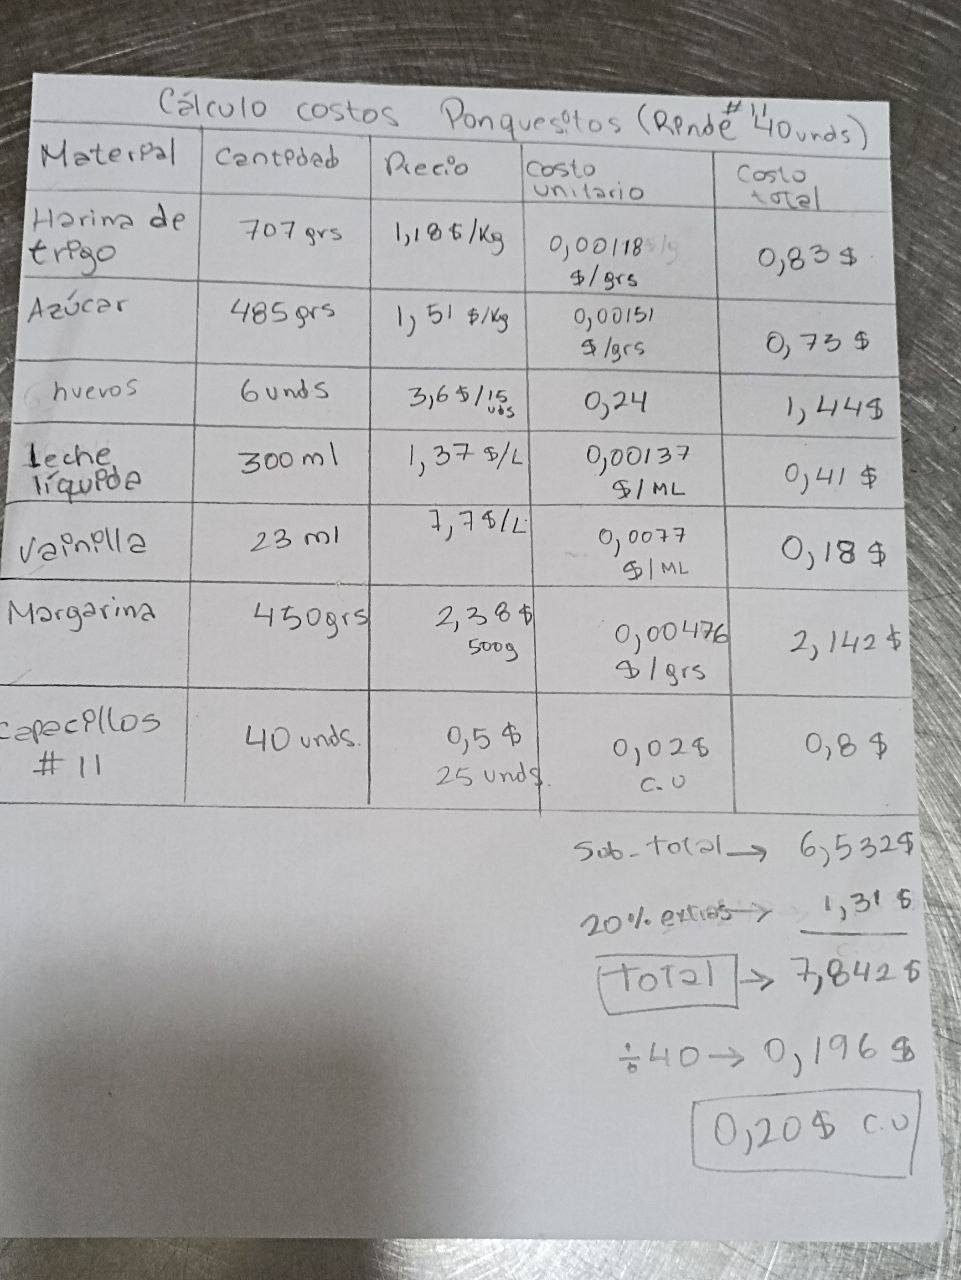 Cálculo costos Ponquesitos (Rinde #11 40 unds)
Material Cantidad Precio Costo unitario Costo total
Harina de trigo 707 grs 1,18 $/Kg 0,00118 $/grs 0,83 $
Azúcar 485 grs 1,51 $/Kg 0,00151 $/grs 0,73 $
huevos 6 unds 3,6 $/15 uds 0,24 1,44$
Leche líquida 300 ml 1,37 $/L 0,00137 $/ML 0,41 $
Vainilla 23 ml 7,7 $/L 0,0077 $/ML 0,18 $
Margarina 450 grs 2,38 $ 500g 0,00476 $/grs 2,142 $
capacillos #11 40 unds. 0,5 $ 25 unds. 0,02$ c.u 0,8 $
Sub-total → 6,532$
20% extras → 1,31 $
Total → 7,842 $
÷40 → 0,196 $
0,20 $ c.u